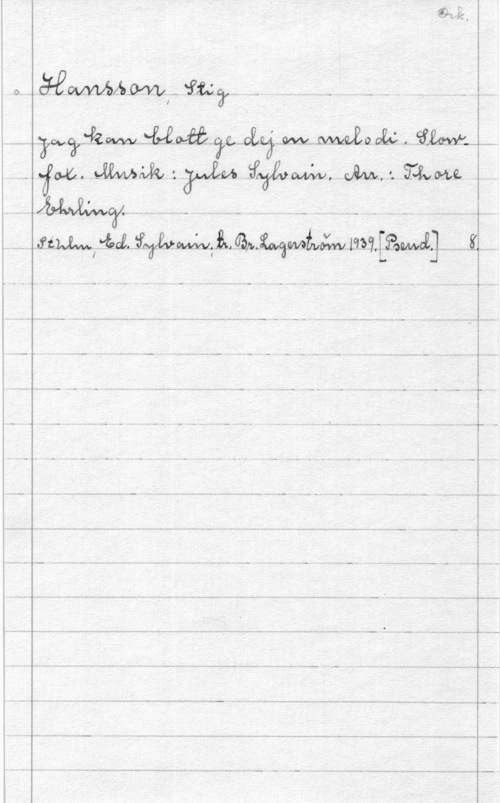 Ork.
Hansson, Stig
Jag kan blott ge dej en melodi. Slow-
fox. Musik: Jules Sylvain. Arr.: Thore
Ehrling.
Sthlm, Ed. Sylvain, tr. Br. Lagerström 1939. [Pseud.] 8.